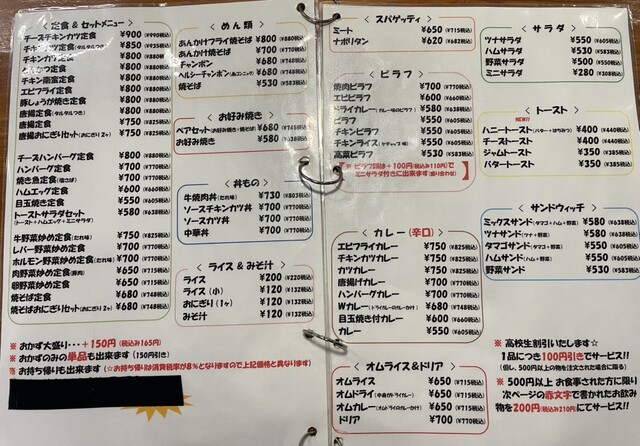 < 定食 & セットメニュー >
チーズチキンカツ定食 ¥900 (¥990税込)
チキンカツ定食(タルタルつき) ¥850 (¥935税込)
チキンカツ定食 ¥800 (¥880税込)
とんかつ定食 ¥800 (¥880税込)
チキン南蛮定食 ¥800 (¥880税込)
エビフライ定食 ¥800 (¥880税込)
豚しょうが焼き定食 ¥800 (¥880税込)
唐揚定食(タルタルつき) ¥800 (¥880税込)
唐揚定食 ¥750 (¥825税込)
唐揚おにぎりセット(おにぎり2ヶ) ¥750 (¥825税込)
チーズハンバーグ定食 ¥800 (¥880税込)
ハンバーグ定食 ¥700 (¥770税込)
焼き魚定食(塩さば) ¥700 (¥770税込)
ハムエッグ定食 ¥600 (¥660税込)
目玉焼き定食 ¥550 (¥605税込)
トーストサラダセット ¥580 (¥638税込)
(トースト+ハムエッグ+ミニサラダ)
牛野菜炒め定食(たれ味) ¥750 (¥825税込)
レバー野菜炒め定食 ¥700 (¥770税込)
ホルモン野菜炒め定食(たれ味) ¥700 (¥770税込)
肉野菜炒め定食(豚肉) ¥650 (¥715税込)
卵野菜炒め定食 ¥650 (¥715税込)
焼そば定食 ¥680 (¥748税込)
焼そばおにぎりセット(おにぎり2ヶ) ¥680 (¥748税込)
☆ おかず大盛り・・・+150円(税込み165円)
☆ おかずのみの単品も出来ます(150円引き)
☆ お持ち帰りも出来ます(☆お持ち帰りは消費税率が8%となりますので上記価格と異なります)
< めん類 >
あんかけフライ焼そば ¥800 (¥880税込)
あんかけ焼そば ¥700 (¥770税込)
チャンポン ¥680 (¥748税込)
ヘルシーチャンポン(糸コンニャク) ¥680 (¥748税込)
焼そば ¥530 (¥583税込)
< お好み焼き >
ペアセット(お好み焼き・焼そば) ¥680 (¥745税込)
お好み焼き ¥580 (¥638税込)
< 丼もの >
牛焼肉丼(たれ味) ¥730 (¥803税込)
ソースチキンカツ丼 ¥700 (¥770税込)
ソースカツ丼 ¥700 (¥770税込)
中華丼 ¥700 (¥770税込)
< ライス & みそ汁 >
ライス ¥200 (¥220税込)
ライス(小) ¥120 (¥132税込)
おにぎり(1ヶ) ¥120 (¥132税込)
みそ汁 ¥120 (¥132税込)
< スパゲッティ >
ミート ¥650 (¥715税込)
ナポリタン ¥620 (¥682税込)
< ピラフ >
焼肉ピラフ ¥700 (¥770税込)
エビピラフ ¥600 (¥660税込)
ドライカレー(カレー味のピラフ) ¥580 (¥638税込)
ピラフ ¥550 (¥605税込)
チキンピラフ ¥550 (¥605税込)
チキンライス(ケチャップ味) ¥550 (¥605税込)
高菜ピラフ ¥530 (¥583税込)
※ ピラフ類は+100円(税込み110円)で
ミニサラダ付きに出来ます(盛り合わせ)
< カレー(辛口) >
エビフライカレー ¥750 (¥825税込)
チキンカツカレー ¥750 (¥825税込)
カツカレー ¥750 (¥825税込)
唐揚げカレー ¥700 (¥770税込)
ハンバーグカレー ¥700 (¥770税込)
Wカレー(ドライカレーのカレーかけ) ¥680 (¥748税込)
目玉焼き付カレー ¥600 (¥660税込)
カレー ¥550 (¥605税込)
< オムライス&ドリア >
オムライス ¥650 (¥715税込)
オムドライ(中身がドライカレー) ¥650 (¥715税込)
オムカレー(オムドライのカレーかけ) ¥650 (¥715税込)
ドリア ¥700 (¥770税込)
< サラダ >
ツナサラダ ¥550 (¥605税込)
ハムサラダ ¥530 (¥583税込)
野菜サラダ ¥500 (¥550税込)
ミニサラダ ¥280 (¥308税込)
< トースト >
NEW!!
ハニートースト(バター+はちみつ) ¥400 (¥440税込)
チーズトースト ¥400 (¥440税込)
ジャムトースト ¥350 (¥385税込)
バタートースト ¥350 (¥385税込)
< サンドウィッチ >
ミックスサンド(タマゴ・ハム・野菜) ¥580 (¥638税込)
ツナサンド(ツナ+野菜) ¥580 (¥638税込)
タマゴサンド(タマゴ+野菜) ¥550 (¥605税込)
ハムサンド(ハム+野菜) ¥550 (¥605税込)
野菜サンド ¥530 (¥583税込)
☆ 高校生割引いたします☆
1品につき100円引きでサービス!!
(但し、500円以上の物を注文された場合に限る)
※ 500円以上 お食事された方に限り
次ページの赤文字で書かれたお飲み
物を200円(税込み210円)にてサービス!!